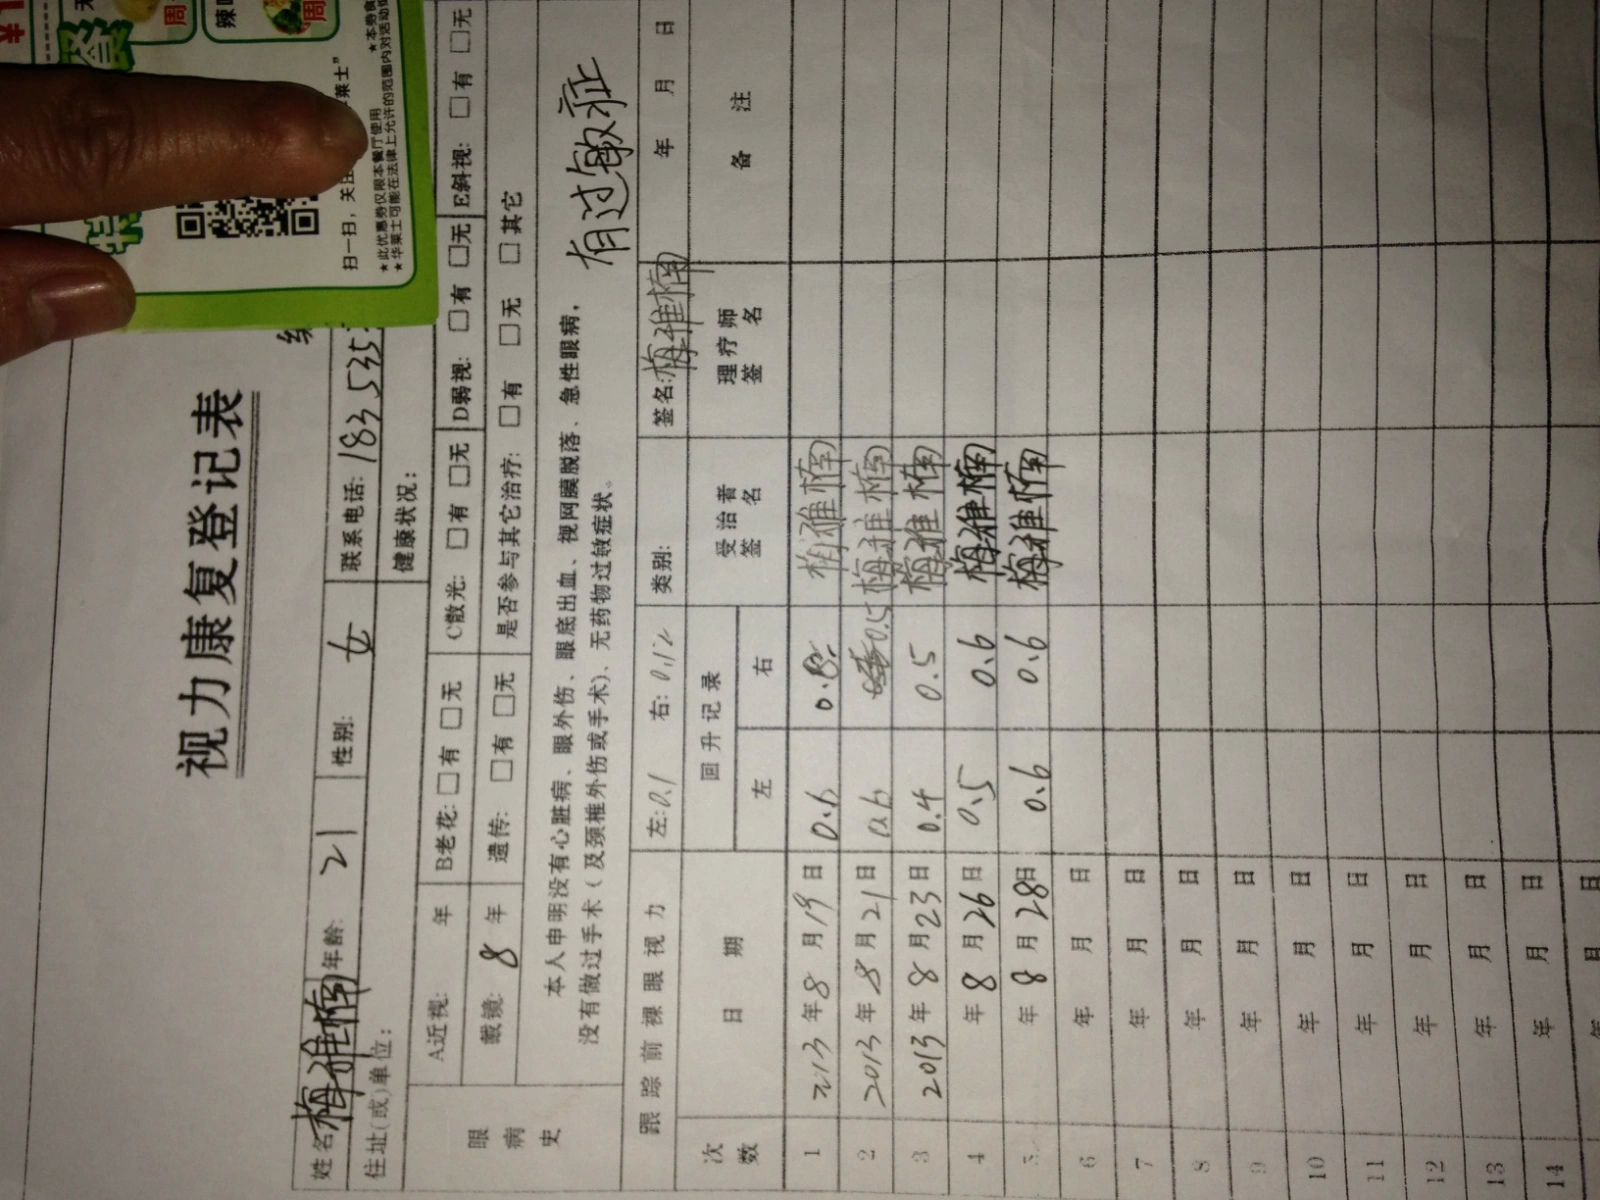 视力康复登记表
姓名 梅雅楠 年龄: 21 性别: 女 联系电话: 183 535
住址(或)单位: 健康状况:
眼病史
A近视: 年 B老花: □有 □无 C散光: □有 □无 D弱视: □有 □无 E斜视: □有 □无
戴镜: 8 年 遗传: □有 □无 是否参与其它治疗: □有 □无 □其它
本人申明没有心脏病、眼外伤、眼底出血、视网膜脱落、急性眼病，
没有做过手术(及颈椎外伤或手术)、无药物过敏症状。
有过敏症
跟踪前裸眼视力 左: 0.1 右: 0.12 类别: 签名: 梅雅楠 年 月 日
次数 日期 回升记录 受治者签名 理疗师签名 备注
左 右
1 2013年8月19日 0.6 梅雅楠
2 2013年8月21日 0.6 0.5 梅雅楠
3 2013年8月23日 0.4 0.5 梅雅楠
4 年8月26日 0.5 0.6 梅雅楠
5 年8月28日 0.6 0.6 梅雅楠
6 年 月 日
7 年 月 日
8 年 月 日
9 年 月 日
10 年 月 日
11 年 月 日
12 年 月 日
13 年 月 日
14 年 月 日
年 月 日
扫一扫，关注 莱士"
★此优惠券仅限本餐厅使用
★华莱士可能在法律上允许的范围内对活动